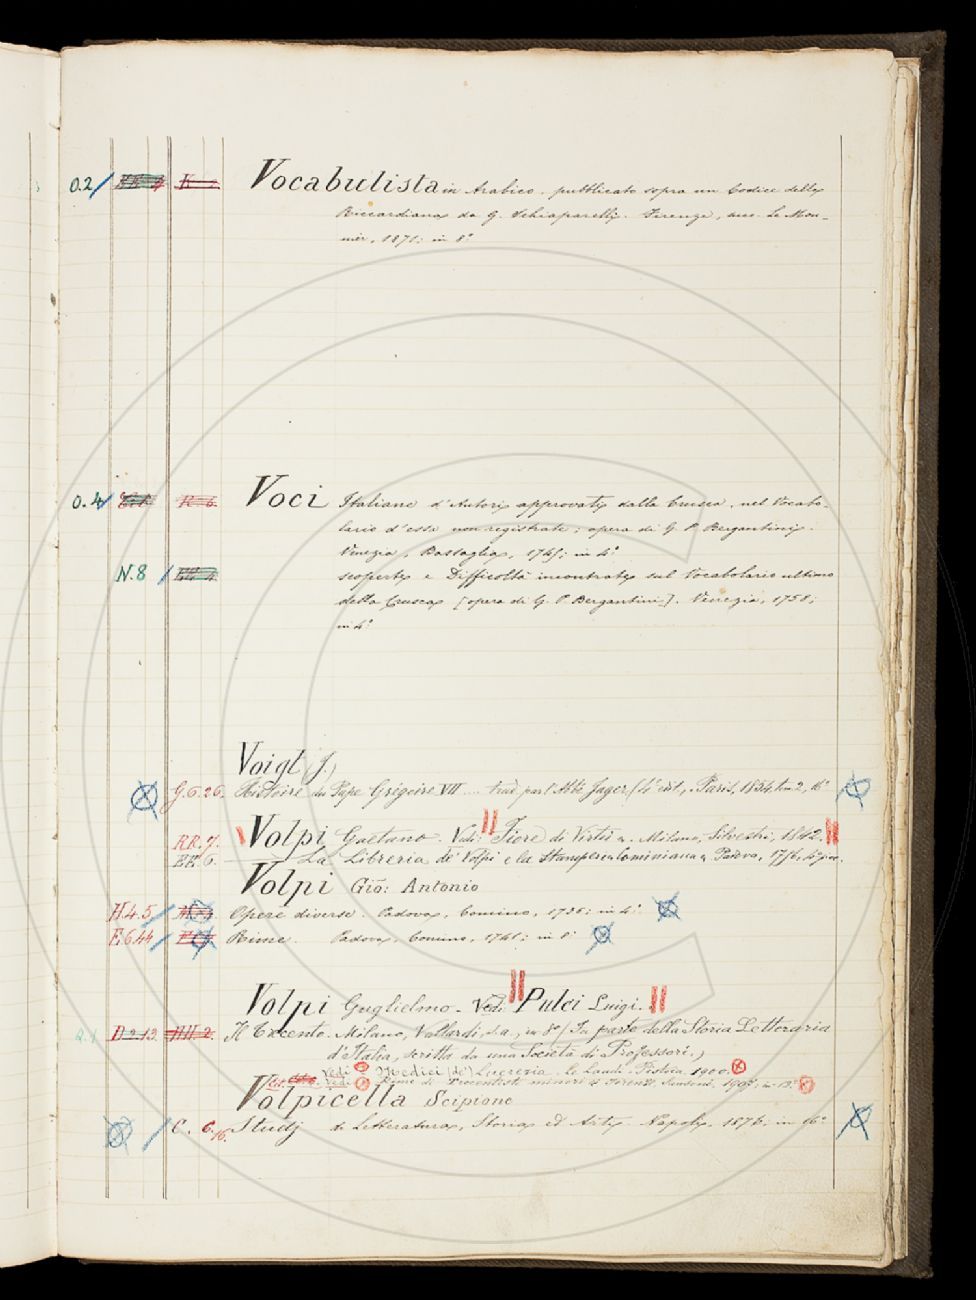 O.2 Vocabulista in Arabico. pubblicato sopra un Codice della
Riccardiana da G. Schiaparelli. Firenze, succ. Le Mon-
nier, 1871; in 8°
O.4 Voci Italiane d'Autori approvati dalla Crusca, nel Vocabo-
lario d'essa non registrate; opera di G. P. Bergantini.
Venezia, Bassaglia, 1745; in 4°
N.8 scoperte e Difficoltà incontrate sul Vocabolario ultimo
della Crusca [opera di G. P. Bergantini]. Venezia, 1758;
in 4°
Voigt (J.)
G.6.26. Histoire du Pape Grégoire VII ... trad. par l'Abbé Jager (4e édit., Paris, 1854, tom 2, 16°
RR.7. Volpi Gaetano. Vedi: Fiore di Virtù Milano, Silvestri, 1842.
RR.6. La Libreria de' Volpi e la Stamperia Cominiana Padova, 1756,
Volpi Gio: Antonio
H.4.5 Opere diverse. Padova, Comino, 1735; in 4°
F.6.44 Rime. Padova, Comino, 1741; in 8°
Volpi Guglielmo. Vedi: Pulci Luigi.
D.2.13. HH.2. Il Trecento. Milano, Vallardi, s.a., in 8° (Fa parte della Storia Letteraria
d'Italia, scritta da una Società di Professori.)
Vedi Medici (de') Lucrezia. Le Laudi. Pistoia 1900.
Vedi Rime di Trecentisti minori Firenze Sansoni, 1907, in 12°
Volpicella Scipione
C. 6. 16. Studj di Letteratura, Storia ed Arti. Napoli, 1876; in 16°